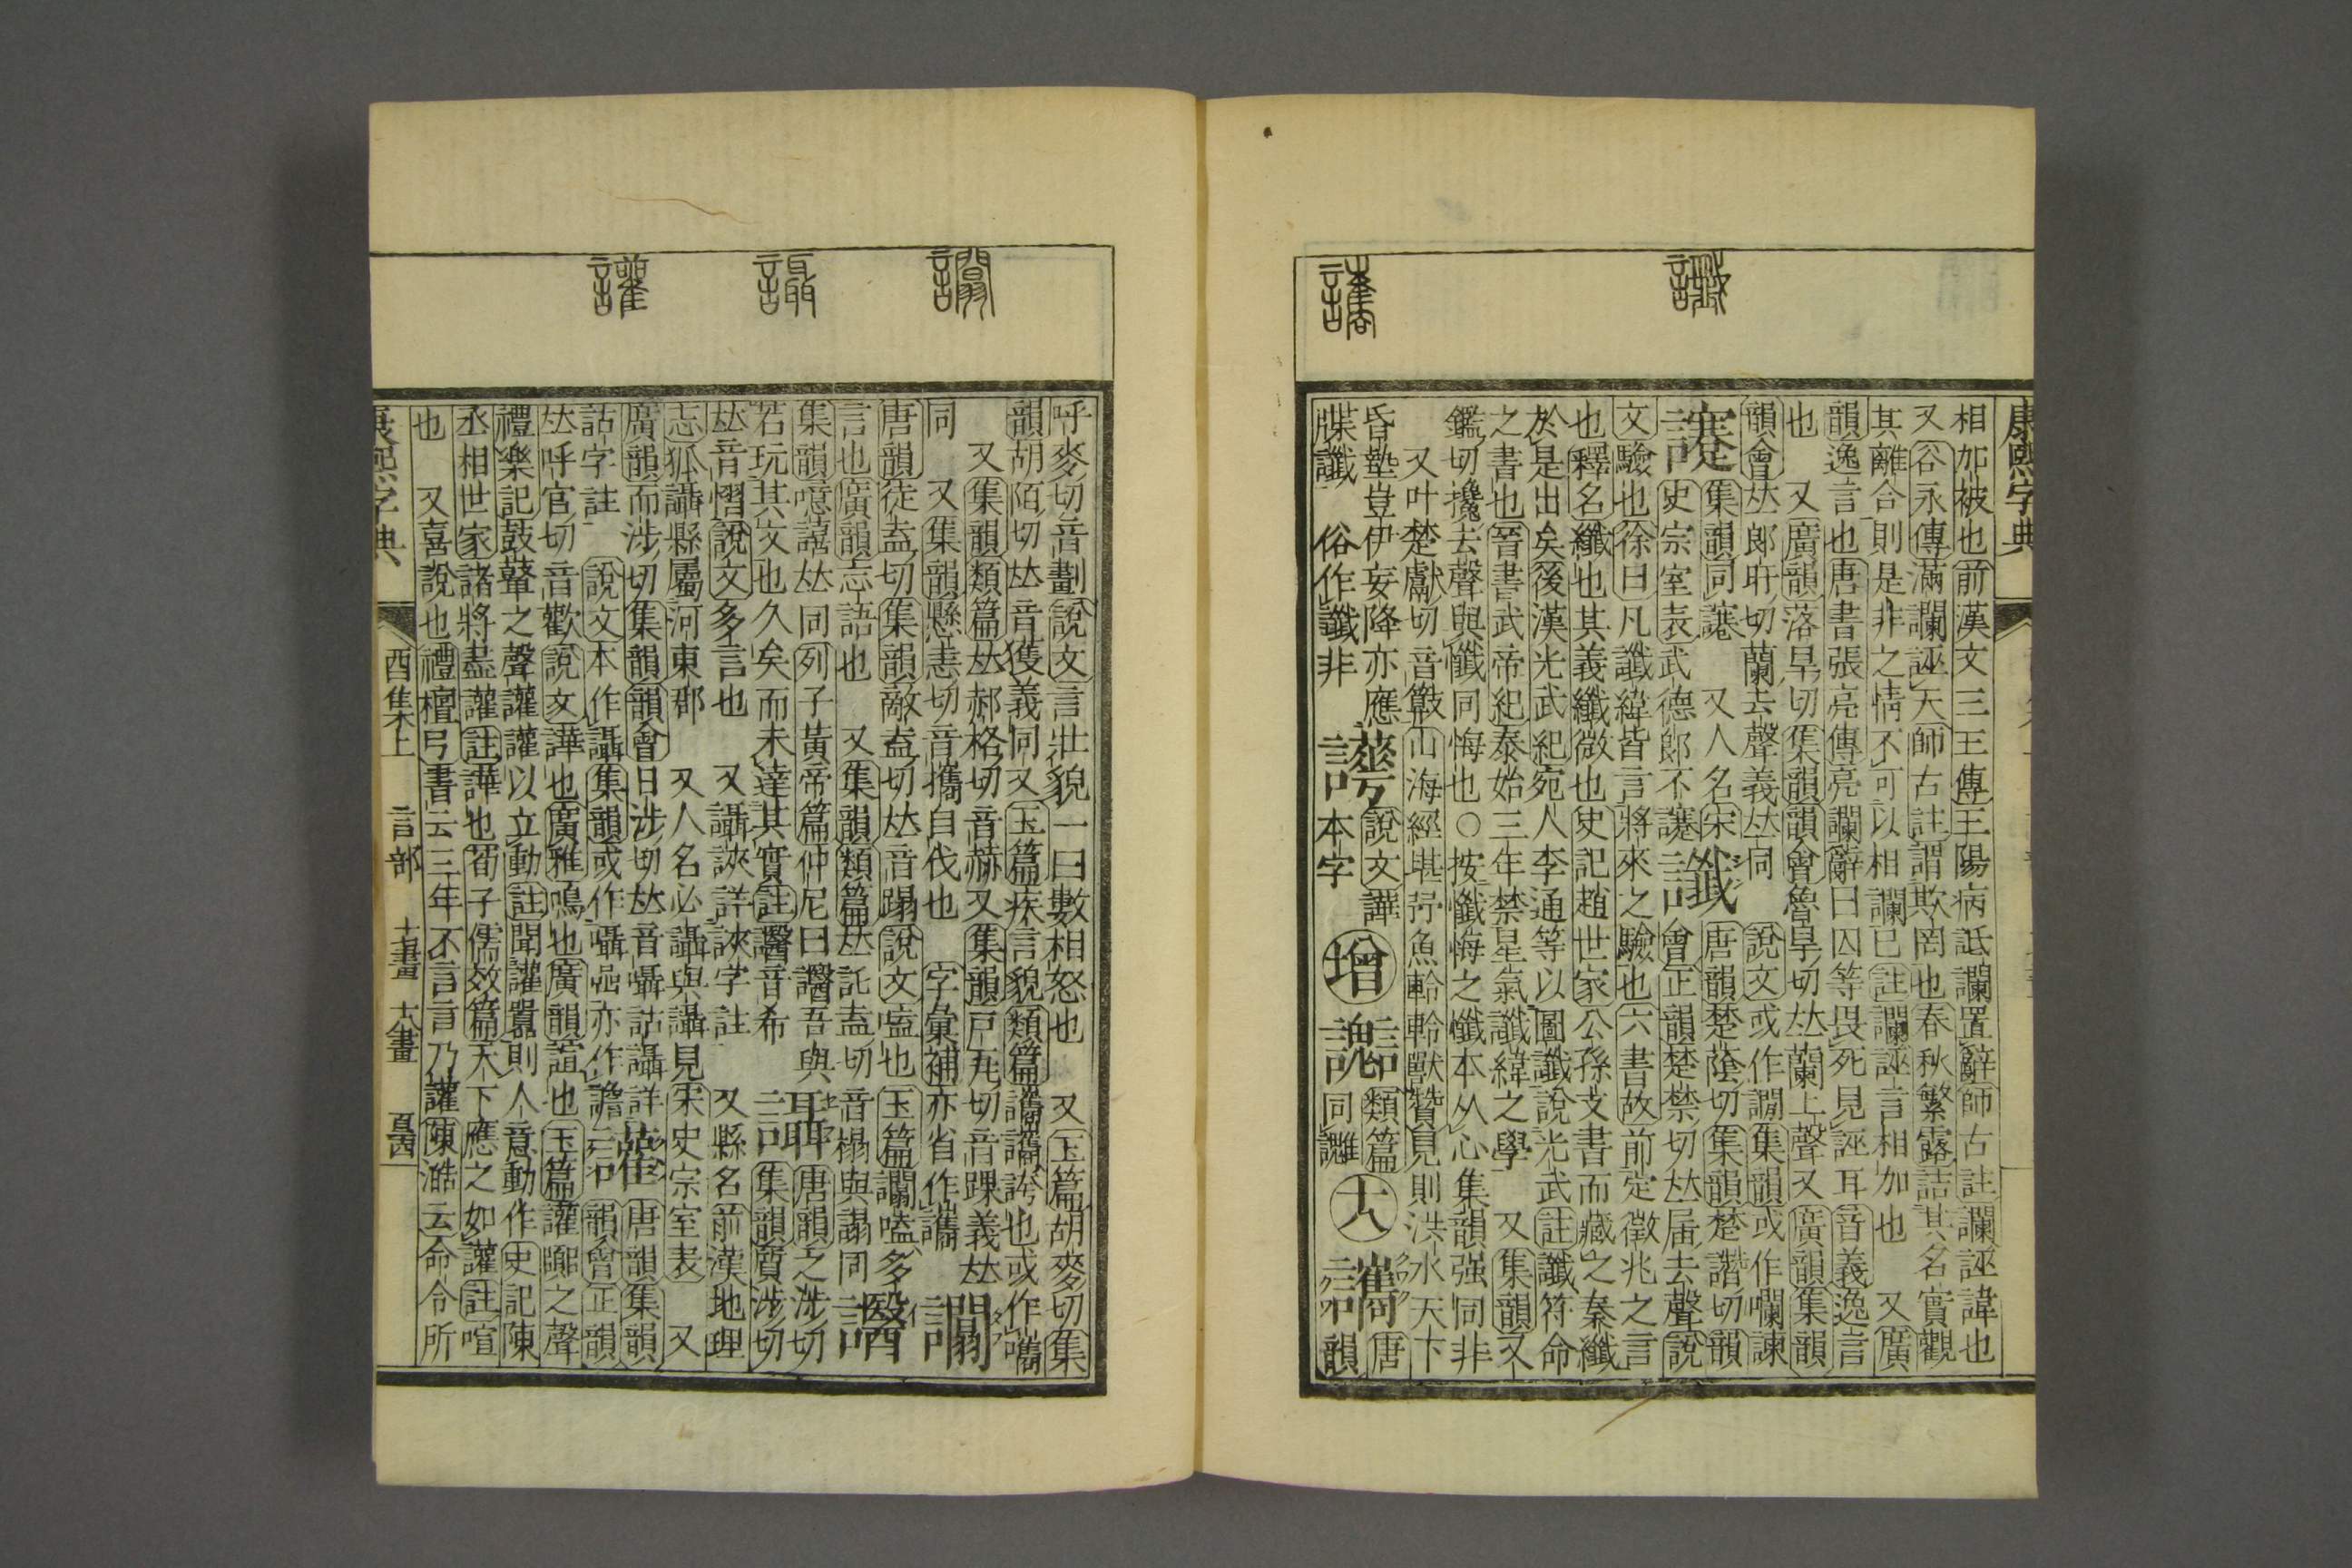 康熙字典
相加被也前漢文三王傳王陽病詆讕置辭師古註讕誣諱也
又谷永傳滿讕誣天師古註謂欺罔也春秋繁露詰其名實觀
其離合則是非之情不可以相讕已註讕誣言相加也 又廣
韻逸言也唐書張亮傳亮讕辭曰囚等畏死見誣耳音義逸言
也 又廣韻落旱切集韻韻會魯旱切𠀤蘭上聲又廣韻集韻
韻會𠀤郎旰切蘭去聲義𠀤同 說文或作𧬘集韻或作囒諫
讖 唐韻楚蔭切集韻楚譖切韻
集韻同謇 又人名宋
史宗室表武德郎不𧭈
會正韻楚禁切𠀤𡲬去聲說
文驗也徐曰凡讖緯皆言將來之驗也六書故前定徵兆之言
也釋名纖也其義纖微也史記趙世家公孫支書而藏之秦讖
於是出矣後漢光武紀宛人李通等以圖讖說光武註讖符命
之書也晉書武帝紀泰始三年禁星氣讖緯之學 又集韻叉
鑑切攙去聲與懺同悔也○按懺悔之懺本从心集韻强同非
又叶楚獻切音𥷚山海經堪㐨魚軨軨獸贊見則洪水天下
昏墊豈伊妄降亦應
牒讖 俗作䜟非
說文譁
本字
增
類篇
同讎
大
讗
唐
韻
讖
讗
呼麥切音劃說文言壯貌一曰數相怒也 又玉篇胡麥切集
韻胡陌切𠀤音獲義同又玉篇疾言貌類篇讗讗誇也或作嚄
又集韻類篇𠀤郝格切音赫又集韻戸瓦切音踝義𠀤
同 又集韻懸恚切音攜自伐也 字彙補亦省作讗
讕
唐韻徒盍切集韻敵盍切𠀤音蹋說文嗑也玉篇讕嗑多
言也廣韻忘語也 又集韻類篇𠀤託盍切音榻與譶同
譩
集韻噫譆𠀤同列子黃帝篇仲尼曰譩吾與
若玩其文也久矣而未達其實註譩音希
讘
唐韻之涉切
集韻質涉切
𠀤音慴說文多言也 又讘䛟詳䛟字註 又縣名前漢地理
志狐讘縣屬河東郡 又人名必讘與讘見宋史宗室表 又
廣韻而涉切集韻韻會日涉切𠀤音囁詀讘詳
詀字註 說文本作讘集韻或作囁嵒亦作譫
讙
唐韻集韻
韻會正韻
𠀤呼官切音歡說文譁也廣雅鳴也廣韻諠也玉篇讙𡄙之聲
禮樂記鼓鼙之聲讙讙以立動註聞讙囂則人意動作史記陳
丞相世家諸將盡讙註譁也荀子儒效篇天下應之如讙註喧
也 又喜說也禮檀弓書云三年不言言乃讙陳澔云命令所
康熙字典
酉集上 言部 十七畫 十八畫 百四
讙
讘
讕